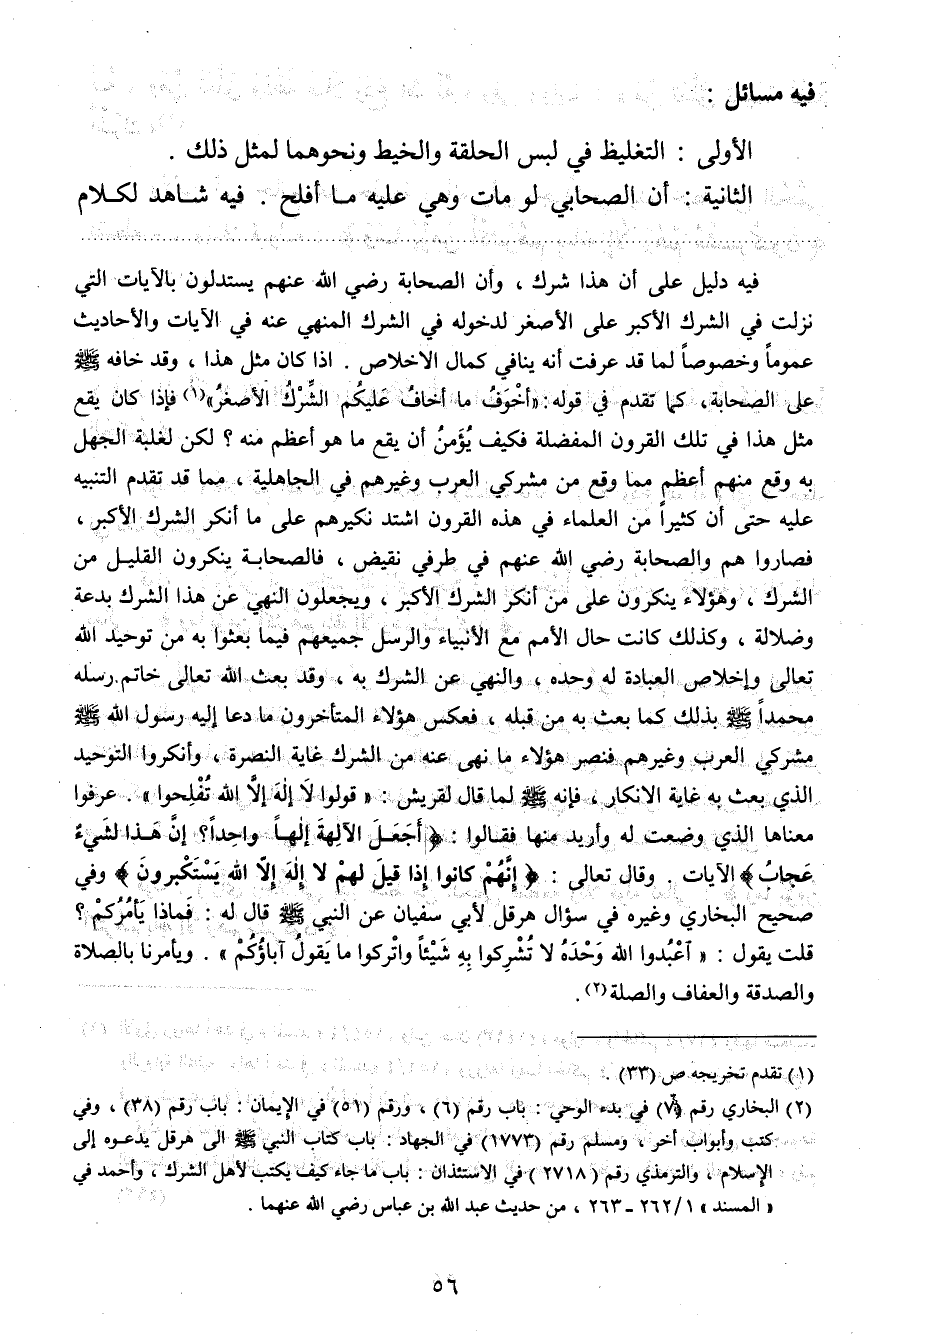 فيه مسائل :
الأولى : التغليظ في لبس الحلقة والخيط ونحوهما لمثل ذلك .
الثانية : أن الصحابي لو مات وهي عليه ما أفلح . فيه شاهد لكلام
فيه دليل على أن هذا شرك ، وأن الصحابة رضي الله عنهم يستدلون بالآيات التي
نزلت في الشرك الأكبر على الأصغر لدخوله في الشرك المنهي عنه في الآيات والأحاديث
عموماً وخصوصاً لما قد عرفت أنه ينافي كمال الاخلاص . اذا كان مثل هذا ، وقد خافه ﷺ
على الصحابة، كما تقدم في قوله: «أخْوَفُ ما أخافُ عَليكُم الشِّرْكُ الأصغرُ»(١) فإذا كان يقع
مثل هذا في تلك القرون المفضلة فكيف يُؤمَنُ أن يقع ما هو أعظم منه ؟ لكن لغلبة الجهل
به وقع منهم أعظم مما وقع من مشركي العرب وغيرهم في الجاهلية ، مما قد تقدم التنبيه
عليه حتى أن كثيراً من العلماء في هذه القرون اشتد نكيرهم على ما أنكر الشرك الأكبر ،
فصاروا هم والصحابة رضي الله عنهم في طرفي نقيض ، فالصحابة ينكرون القليل من
الشرك ، وهؤلاء ينكرون على من أنكر الشرك الأكبر ، ويجعلون النهي عن هذا الشرك بدعة
وضلالة ، وكذلك كانت حال الأمم مع الأنبياء والرسل جميعهم فيما بعثوا به من توحيد الله
تعالى وإخلاص العبادة له وحده ، والنهي عن الشرك به ، وقد بعث الله تعالى خاتم رسله
محمداً ﷺ بذلك كما بعث به من قبله ، فعكس هؤلاء المتأخرون ما دعا إليه رسول الله ﷺ
مشركي العرب وغيرهم فنصر هؤلاء ما نهى عنه من الشرك غاية النصرة ، وأنكروا التوحيد
الذي بعث به غاية الانكار ، فإنه ﷺ لما قال لقريش : « قولوا لَا إلٰهَ إلاَّ الله تُفْلِحوا » . عرفوا
معناها الذي وضعت له وأريد منها فقالوا : ﴿ أَجَعَلَ الآلِهةَ إلٰهاً واحِداً؟ إنَّ هَذا لشَيءٌ
عَجابُ ﴾ الآيات . وقال تعالى : ﴿ إنَّهُمْ كانوا إذا قيلَ لهمْ لا إلٰهَ إلاّ الله يَسْتَكْبرونَ ﴾ وفي
صحيح البخاري وغيره في سؤال هرقل لأبي سفيان عن النبي ﷺ قال له : فَماذا يَأمُرُكمْ ؟
قلت يقول : « اعْبُدوا الله وَحْدَهُ لا تُشْرِكوا بِهِ شَيْئاً واتْركوا ما يَقولُ آباؤُكُمْ » . ويأمرنا بالصلاة
والصدقة والعفاف والصلة(٢).
(١) تقدم تخريجه ص (٣٣) .
(٢) البخاري رقم (٧) في بدء الوحي : باب رقم (٦) ، ورقم (٥١) في الإيمان : باب رقم (٣٨) ، وفي
كتب وأبواب أخر ، ومسلم رقم (١٧٧٣) في الجهاد : باب كتاب النبي ﷺ الى هرقل يدعوه إلى
الإسلام ، والترمذي رقم ( ٢٧١٨ ) في الاستئذان : باب ما جاء كيف يكتب لأهل الشرك ، وأحمد في
« المسند » ١/ ٢٦٢ ـ ٢٦٣ ، من حديث عبد الله بن عباس رضي الله عنهما .
٥٦